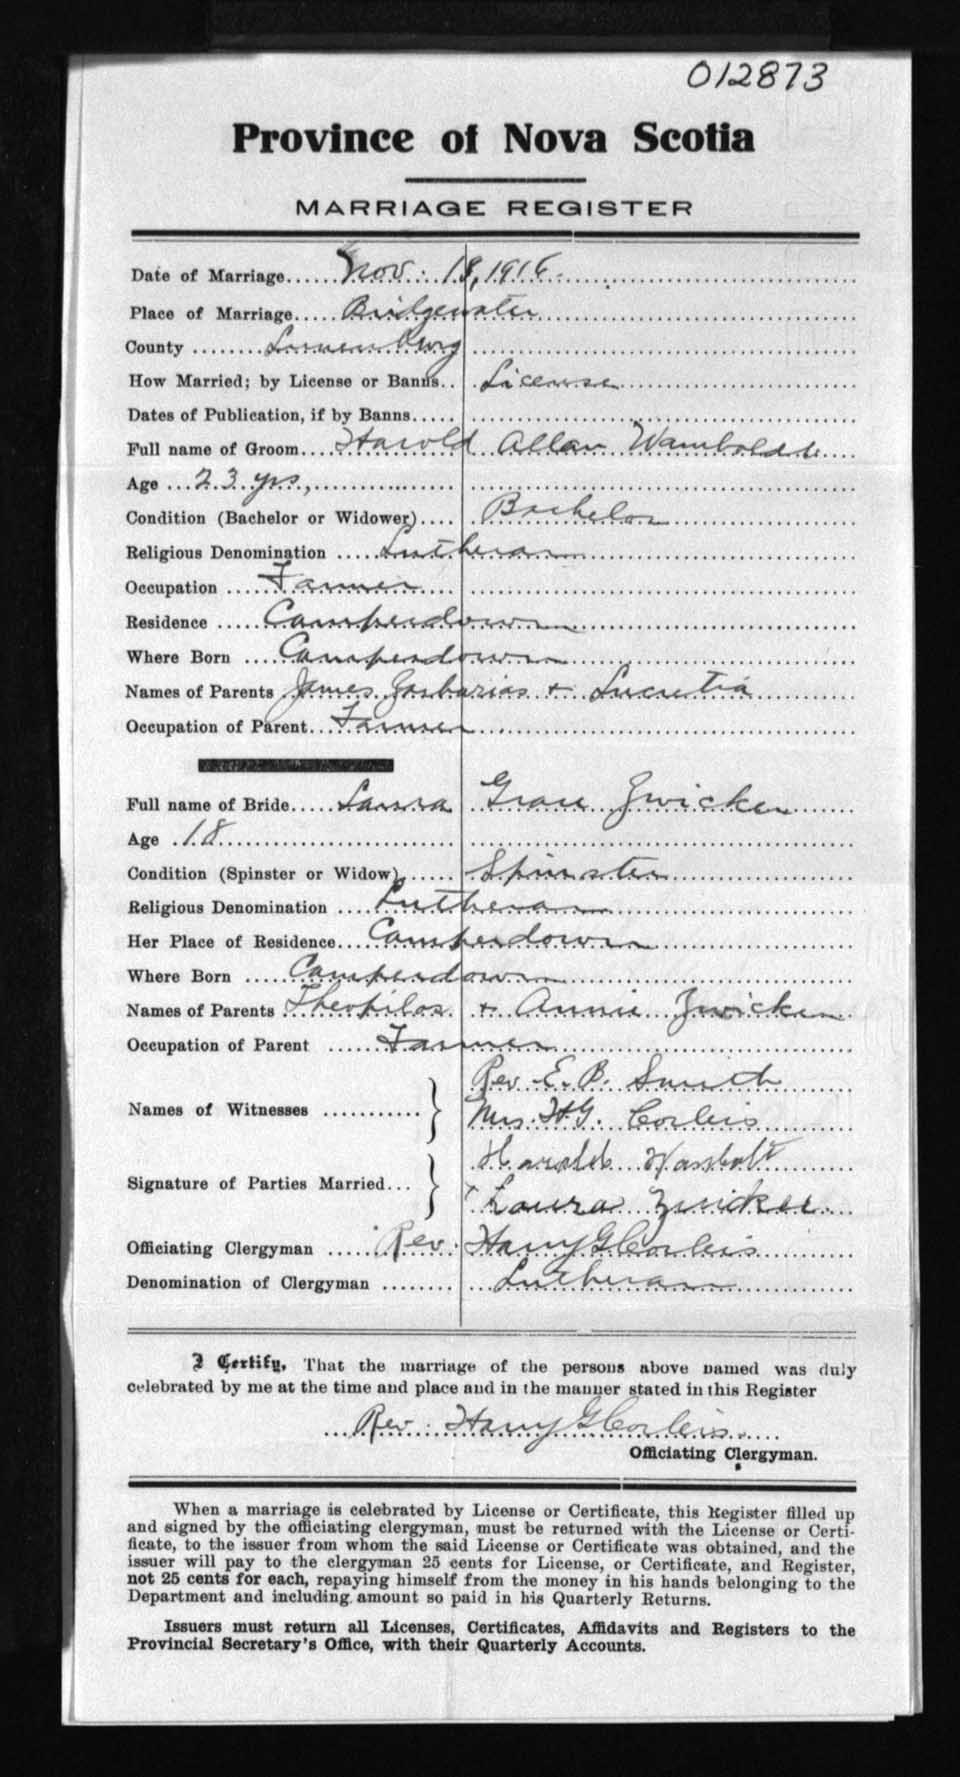 012873
Province of Nova Scotia
MARRIAGE REGISTER
Date of Marriage Nov. 18, 1916
Place of Marriage Bridgewater
County Lunenburg
How Married; by License or Banns License
Dates of Publication, if by Banns
Full name of Groom Harold Allan Wamboldt
Age 23 yrs,
Condition (Bachelor or Widower) Bachelor
Religious Denomination Lutheran
Occupation Farmer
Residence Camperdown
Where Born Camperdown
Names of Parents James Zacharias + Lucretia
Occupation of Parent Farmer
Full name of Bride Laura Grace Zwicker
Age 18
Condition (Spinster or Widow) Spinster
Religious Denomination Lutheran
Her Place of Residence Camperdown
Where Born Camperdown
Names of Parents Theopilos + Annie Zwicker
Occupation of Parent Farmer
Rev. E. B. Smith
Names of Witnesses
Mrs. H.G.
Harold
Signature of Parties Married
x Laura Zwicker
Officiating Clergyman Rev. Harry G.
Denomination of Clergyman Lutheran
I Certify, That the marriage of the persons above named was duly
celebrated by me at the time and place and in the manner stated in this Register
Rev. Harry G.
Officiating Clergyman.
When a marriage is celebrated by License or Certificate, this Register filled up
and signed by the officiating clergyman, must be returned with the License or Certi-
ficate, to the issuer from whom the said License or Certificate was obtained, and the
issuer will pay to the clergyman 25 cents for License, or Certificate, and Register,
not 25 cents for each, repaying himself from the money in his hands belonging to the
Department and including amount so paid in his Quarterly Returns.
Issuers must return all Licenses, Certificates, Affidavits and Registers to the
Provincial Secretary's Office, with their Quarterly Accounts.